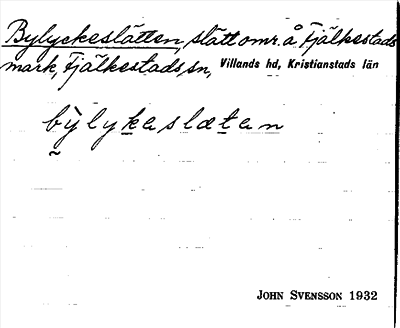 Bylyckeslätten, slätt omr. å Fjälkestads
mark, Fjälkestads sn, Villands hd, Kristianstads län
bỳlykaslætan
JOHN SVENSSON 1932